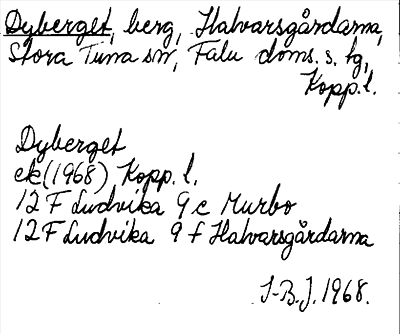 Dyberget, berg, Halvarsgårdarna,
Stora Tuna sn, Falu doms. s. tg,
Kopp. l.
Dyberget
ek (1968) Kopp. l.
12 F Ludvika 9 c Murbo
12 F Ludvika 9 f Halvarsgårdarna
I-B.J. 1968.